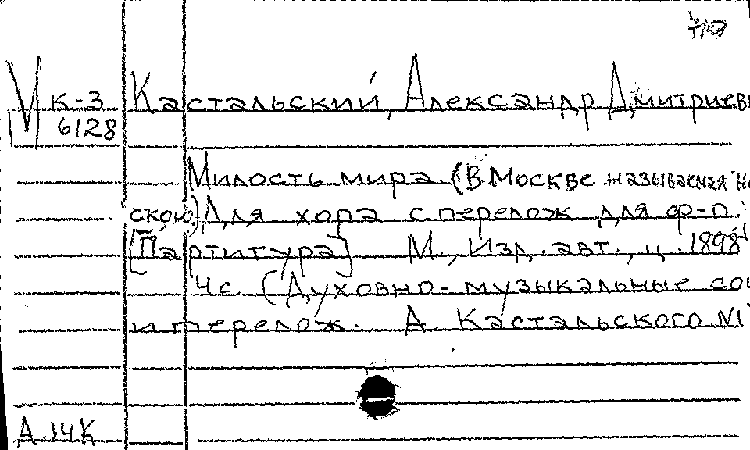 К-3 Кастальский, Александр Дмитриев
6128
Милость мира (В Москве называемая
скою) Для хора с перелож для ф-п.
[Партитура] М., Изд. авт., ц. 1898
4 с. (Духовно-музыкальные со
и перелож. А Кастальского №1
А 14К